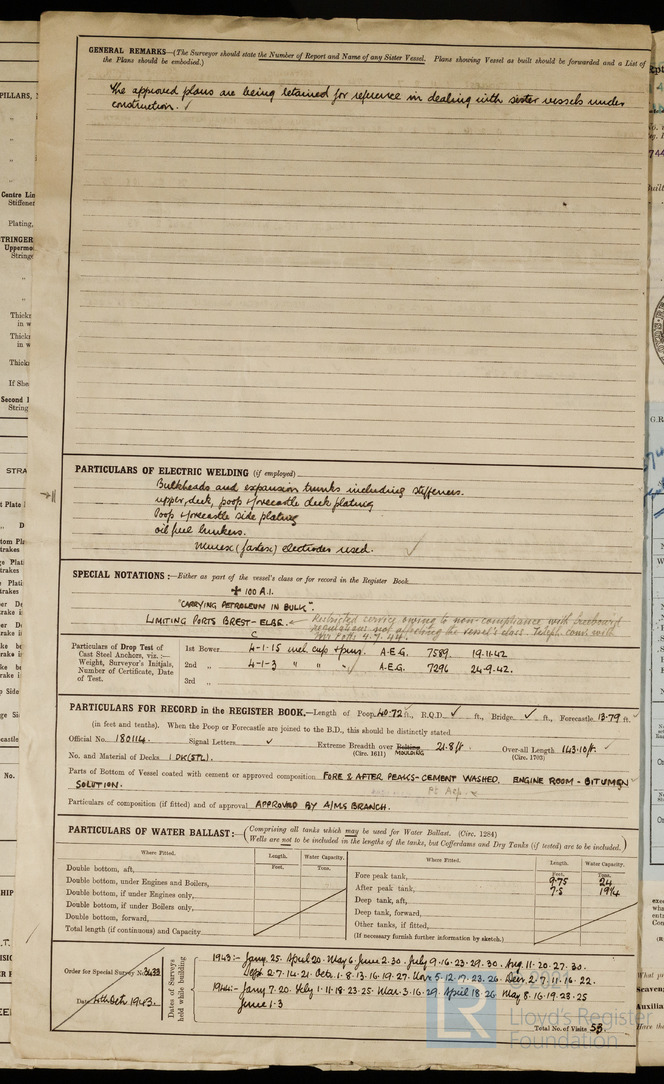 GENERAL REMARKS—(The Surveyor should state the Number of Report and Name of any Sister Vessel. Plans showing Vessel as built should be forwarded and a List of
the Plans should be embodied.)
The approved plans are being retained for reference in dealing with sister vessels under
construction. ✓
PARTICULARS OF ELECTRIC WELDING (if employed)
Bulkheads and expansion trunks including stiffeners.
upper deck, poop & forecastle deck plating
Poop & forecastle side plating
oil fuel bunkers.
Murex (fastex) electrodes used. ✓
SPECIAL NOTATIONS:—Either as part of the vessel's class or for record in the Register Book
✠ 100 A.1.
"CARRYING PETROLEUM IN BULK".
LIMITING PORTS BREST-ELBE. Restricted service owing to non-compliance with freeboard
regulations not affecting the vessel's class. Teleph. conv. with
Mr Potts 4.7.44.
Particulars of Drop Test of
Cast Steel Anchors, viz.:—
Weight, Surveyor's Initials,
Number of Certificate, Date
of Test.
1st Bower 4-1-15 incl. cup & pins. A.E.G. 7589. 19.11.42
2nd „ 4-1-3 " " " ✓ A.E.G. 7296 24-9-42.
3rd „
PARTICULARS FOR RECORD in the REGISTER BOOK.—Length of Poop 40.72 ft., R.Q.D. ✓ ft., Bridge ✓ ft., Forecastle 13.79 ft.
(in feet and tenths). When the Poop or Forecastle are joined to the B.D., this should be distinctly stated
Official No. 180114 Signal Letters ✓ Extreme Breadth over Belting MOULDING 21.8 ft Over-all Length 143.10 ft.
(Circ. 1611) (Circ. 1703)
No. and Material of Decks 1 DK (STL).
Parts of Bottom of Vessel coated with cement or approved composition FORE & AFTER PEAKS-CEMENT WASHED. ENGINE ROOM - BITUMEN
SOLUTION.
Particulars of composition (if fitted) and of approval APPROVED BY A/MS BRANCH.
PARTICULARS OF WATER BALLAST:— (Comprising all tanks which may be used for Water Ballast. (Circ. 1284)
Wells are not to be included in the lengths of the tanks, but Cofferdams and Dry Tanks (if tested) are to be included.)
Where Fitted. Length. Water Capacity. Where Fitted. Length. Water Capacity.
Feet. Tons. Feet. Tons.
Double bottom, aft, Fore peak tank, 9.75 24
Double bottom, under Engines and Boilers, After peak tank, 7.5 19¼
Double bottom, if under Engines only, Deep tank, aft,
Double bottom, if under Boilers only, Deep tank, forward,
Double bottom, forward, Other tanks, if fitted,
Total length (if continuous) and Capacity (If necessary furnish further information by sketch.)
Order for Special Survey No. 3633
Date 1943.
Dates of Surveys held while building
1943:- Jany. 25. April 20. May 6. June 2. 30. July 9. 16. 23. 29. 30. Aug. 11. 20. 27. 30.
Sept. 2. 7. 14. 21. Oct. 1. 8. 13. 16. 19. 27. Nov. 5. 12. 17. 23. 26. Dec. 2. 7. 11. 16. 22.
1944:- Jany 7. 20. Feby 1. 11. 18. 23. 25. Mar. 3. 16. 29. April 18. 26. May 8. 16. 19. 23. 25
June 1. 3
Total No. of Visits 53.
© 2021
LR
Lloyd's Register
Foundation